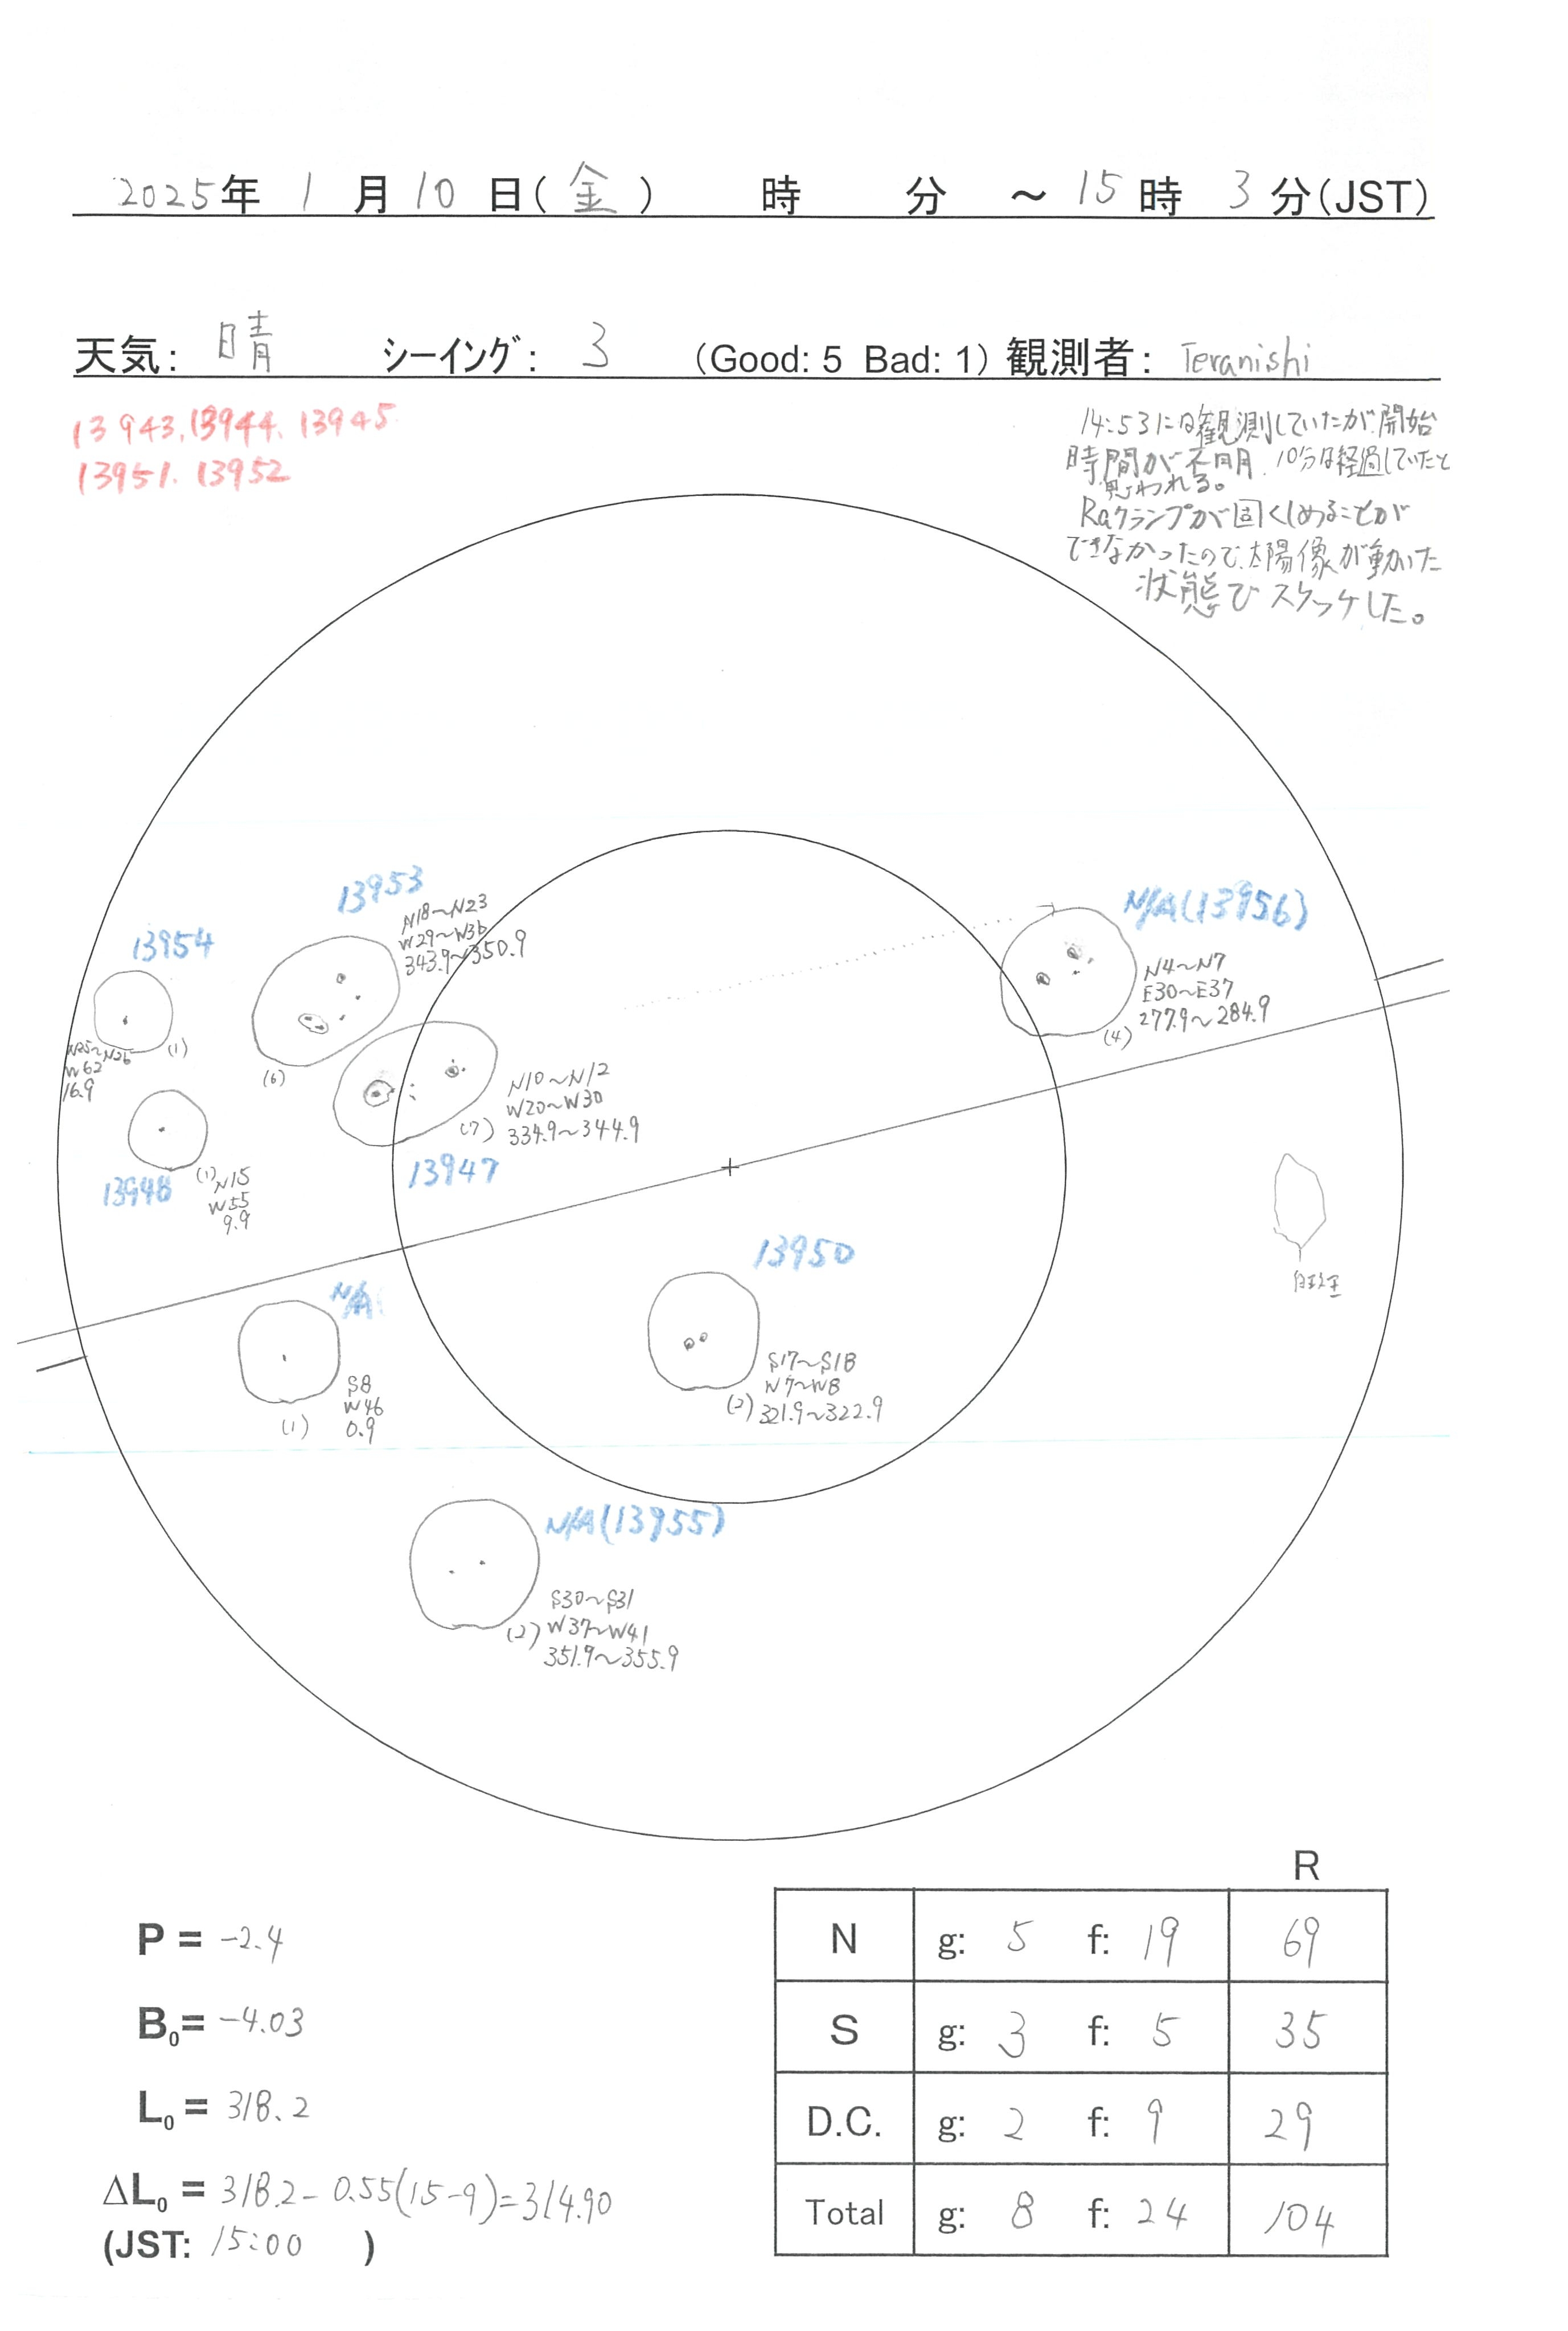 2025年 1月 10日(金) 時 分 ～15時 3分(JST)
天気: 晴 シーイング: 3 (Good: 5 Bad: 1) 観測者: Teranishi
13943, 13944, 13945
13951, 13952
14:53には観測していたが、開始
時間が不明。10分は経過していたと
思われる。
Raクランプが固くしめることが
できなかったので、太陽像が動いた
状態でスケッチした。
13953
N18～N23
W29～W36
343.9～350.9
(6)
13954
(1)
N25～N26
W62
16.9
N/A(13956)
N4～N7
E30～E37
277.9～284.9
(4)
N10～N12
W20～W30
334.9～344.9
(7)
13947
13948
(1) N15
W55
9.9
白斑
13950
S17～S18
W7～W8
(2) 321.9～322.9
N/A
S8
W46
0.9
(1)
N/A(13955)
S30～S31
(2) W37～W41
351.9～355.9
R
N g: 5 f: 19 69
S g: 3 f: 5 35
D.C. g: 2 f: 9 29
Total g: 8 f: 24 104
P = -2.4
B₀= -4.03
L₀ = 318.2
ΔL₀ = 318.2 - 0.55(15-9)=314.90
(JST: 15:00 )